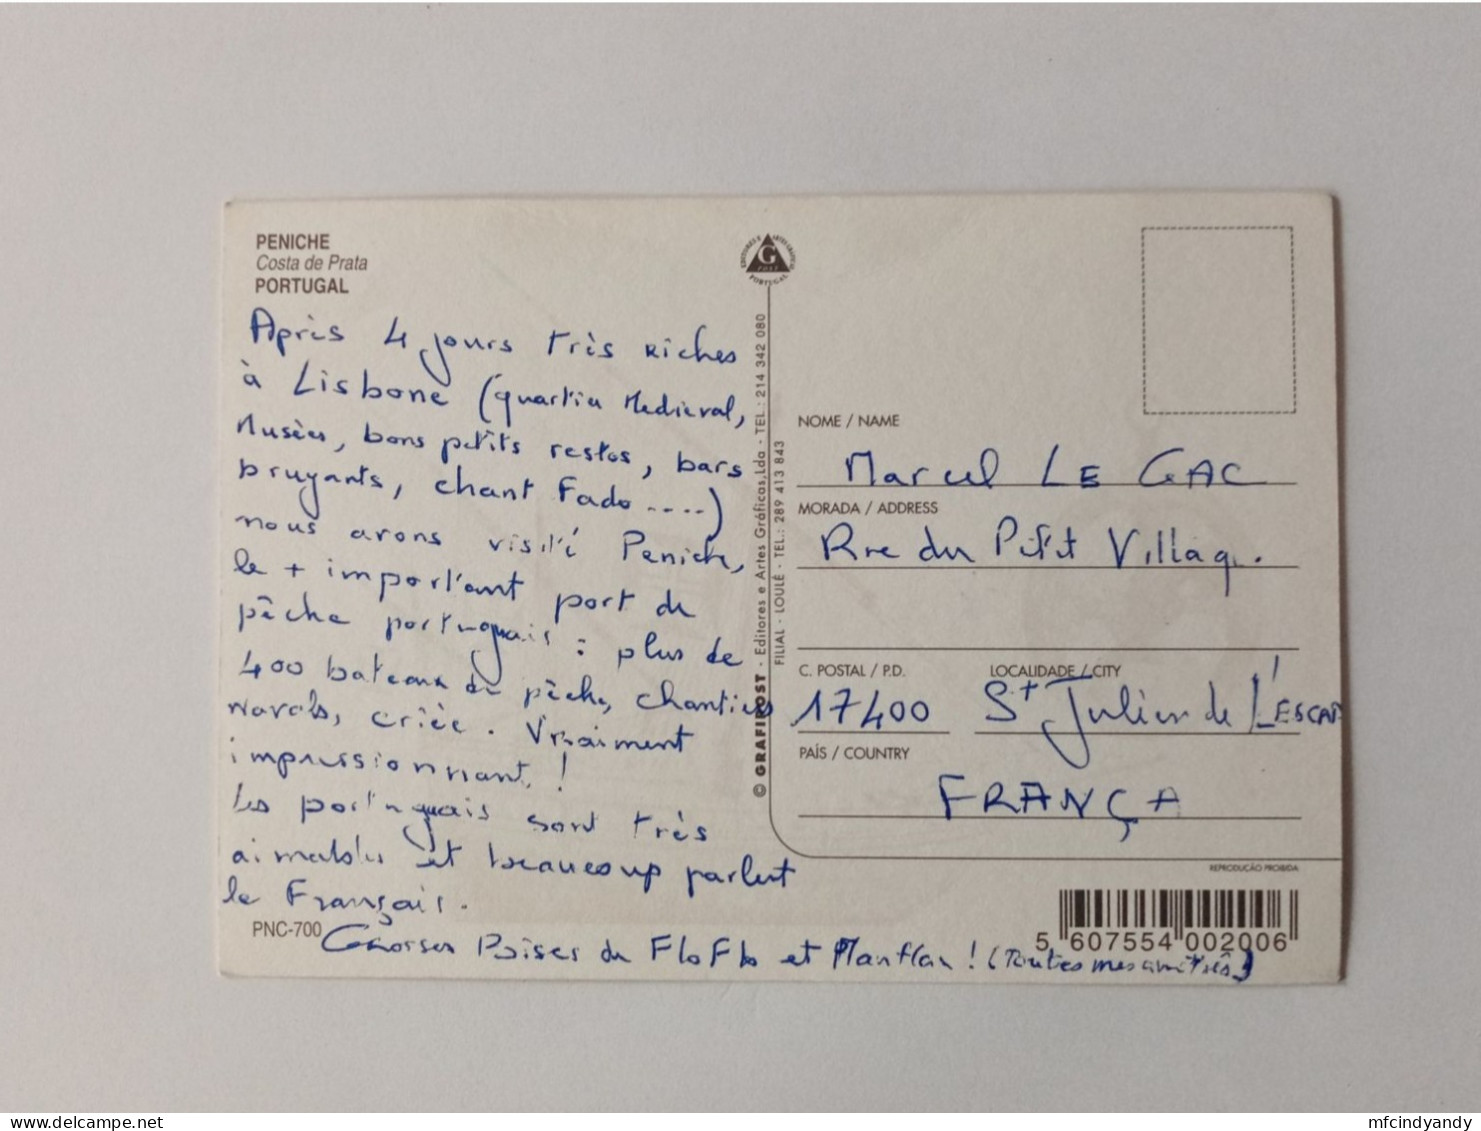 PENICHE
Costa de Prata
PORTUGAL
Après 4 jours très riches
à Lisbone (quartier Medieval,
Musées, bons petits restos, bars
bruyants, chant Fado ....)
nous avons visité Peniche,
le + important port de
pêche portuguais : plus de
400 bateaux de pêche, chantiers
navals, criée. Vraiment
impressionnant !
Les portuguais sont très
aimables et beaucoup parlent
le Français.
PNC-700
Grosses Bises de FloFlo et Manflan ! (Toutes mes amitiés)
EDITORES E ARTES GRÁFICAS
G
POST
PORTUGAL
© GRAFIPOST - Editores e Artes Gráficas,Lda - TEL.: 214 342 080
FILIAL - LOULÉ - TEL.: 289 413 843
NOME / NAME
Marcel LE GAC
MORADA / ADDRESS
Rue du Petit Village.
C. POSTAL / P.D.
LOCALIDADE / CITY
17400
St Julien de L'ESCAP
PAÍS / COUNTRY
FRANÇA
REPRODUÇÃO PROIBIDA
5 607554 002006
mfcindyandy